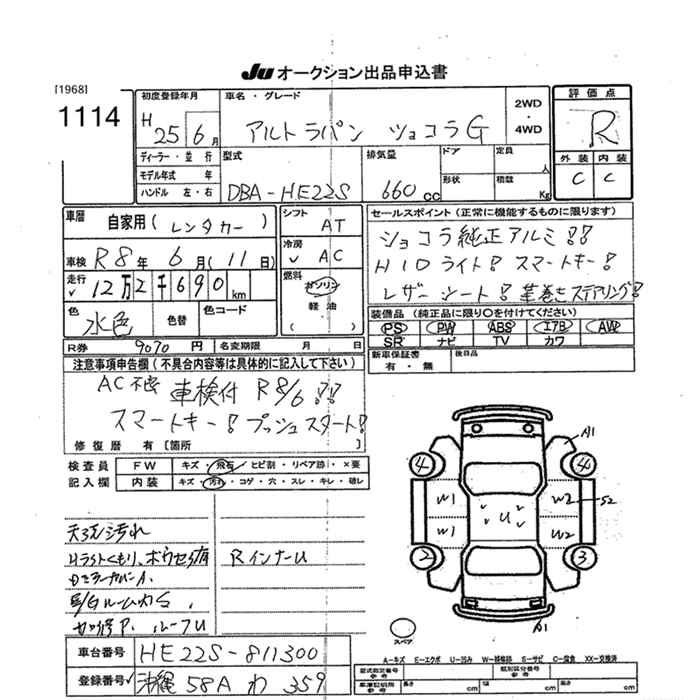 JU オークション出品申込書
[1968]
1114
初度登録年月
H 25年 6月
車名・グレード
アルトラパン ショコラG
2WD
・
4WD
評価点
R
外装 内装
C C
ディーラー・並行
モデル年式 年
ハンドル 左・右
型式
DBA-HE22S
排気量
660 cc
ドア
形状
定員
人
積載
Kg
車歴
自家用(レンタカー)
シフト
AT
車検 R8年 6月(11日)
冷房
✓ AC
走行
✓ 12万2千690km
燃料
ガソリン
軽油
( )
色
水色
色替
色コード
R券 9070円
名変期限 月 日
セールスポイント(正常に機能するものに限ります)
ショコラ純正アルミ!!
HIDライト! スマートキー!
レザーシート! 革巻きステアリング!
装備品(純正品に限り〇を付けてください)
PS PW ABS エアB AW
SR ナビ TV カワ
新車保証書
有・無
後日品
注意事項申告欄(不具合内容等は具体的に記入して下さい)
AC不良 車検付 R8/6!!
スマートキー! プッシュスタート!
修復歴 有[箇所 ]
検査員
記入欄
FW キズ・飛石・ヒビ割・リペア跡・×要
内装 キズ・汚れ・コゲ・穴・スレ・キレ・破レ
天張汚れ
Hライトくもり、
RインナーU
ルーフU
A1
4 4
W1 W2 S2
U
W1 W2
2 3
A1
スペア
A-キズ E-エクボ U-凹み W-補修跡 S-サビ C-腐食 XX-交換済
車台番号 HE22S-811300
登録番号 沖縄 58A わ 359
型式指定番号
参考
類別区分番号
参考
車庫証明用
参考
長さ cm
幅 cm
高さ cm